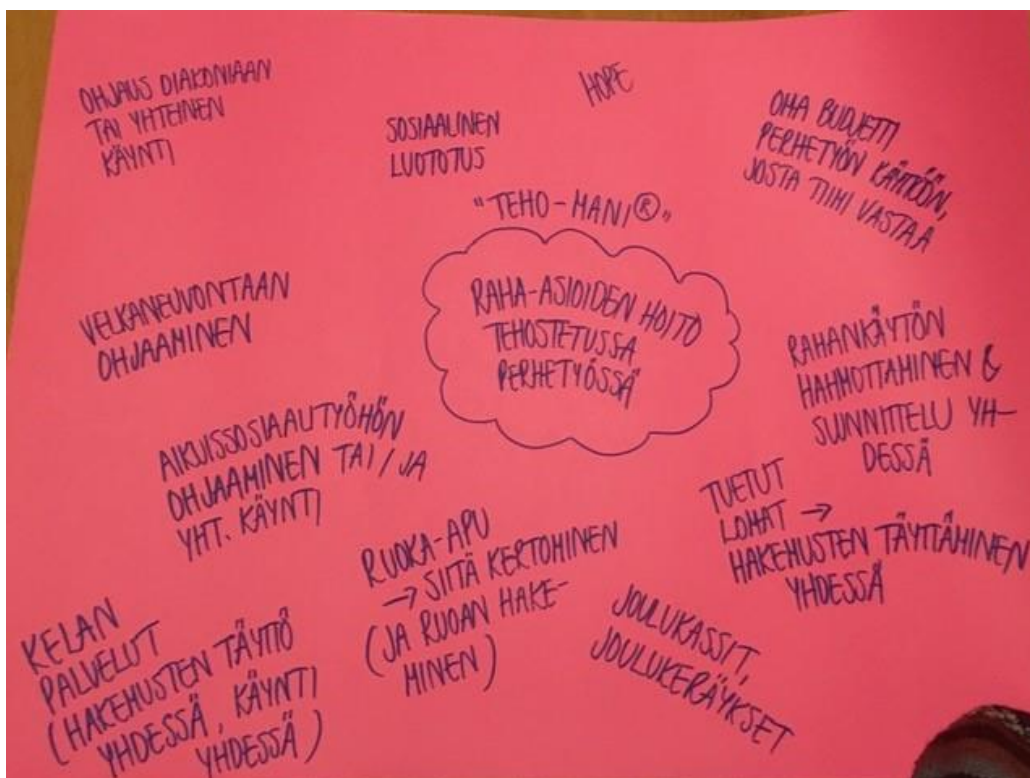 OHJAUS DIAKONIAAN
TAI YHTEINEN
KÄYNTI
SOSIAALINEN
LUOTOTUS
HOPE
OMA BUDJETTI
PERHETYÖN KÄYTTÖÖN,
JOSTA TIIMI VASTAA
"TEHO-MANI®"
RAHA-ASIOIDEN HOITO
TEHOSTETUSSA
PERHETYÖSSÄ
VELKANEUVONTAAN
OHJAAMINEN
RAHANKÄYTÖN
HAHMOTTAMINEN &
SUNNITTELU YH-
DESSÄ
AIKUISSOSIAALITYÖHÖN
OHJAAMINEN TAI/JA
YHT. KÄYNTI
TUETUT
LOMAT →
HAKEMUSTEN TÄYTTÄMINEN
YHDESSÄ
RUOKA-APU
→ SIITÄ KERTOMINEN
(JA RUOAN HAKE-
MINEN)
JOULUKASSIT,
JOULUKERÄYKSET
KELAN
PALVELUT
(HAKEMUSTEN TÄYTTÖ
YHDESSÄ, KÄYNTI
YHDESSÄ)